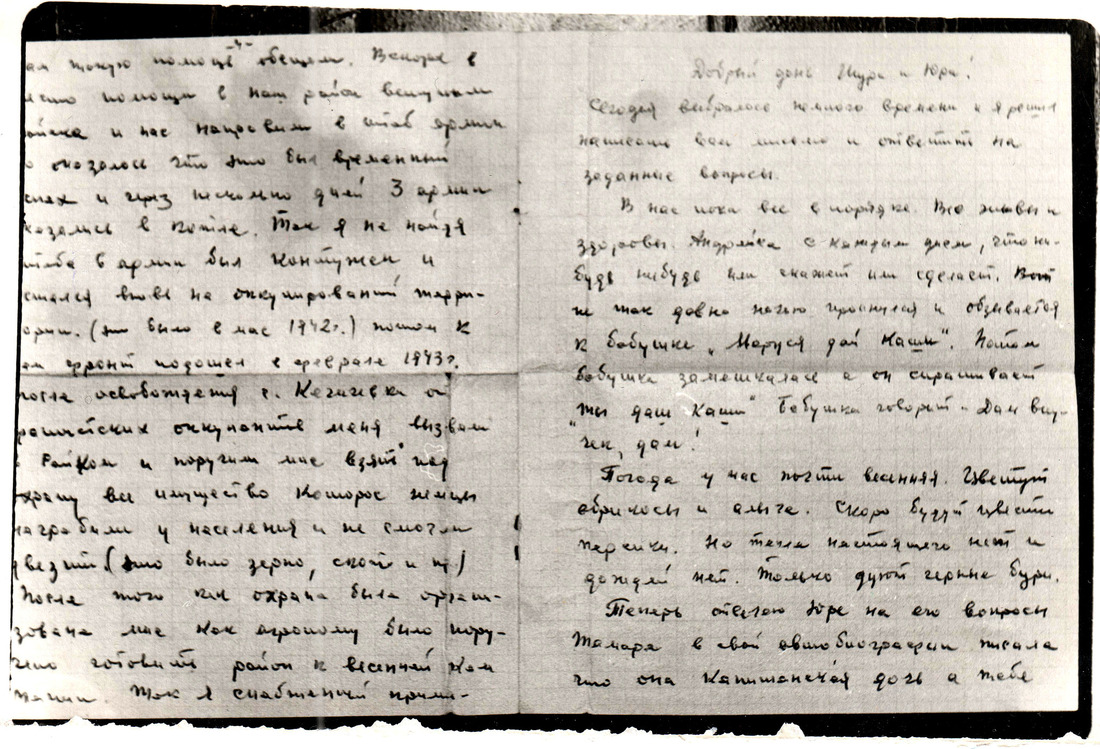 -4-
ам такую помощь обещали. Вскоре в
место помощи в наш район вступили
войска и нас направили в штаб армии
о оказалось что это был временный
спех и через несколько дней 3 армии
казались в котле. Так я не найдя
штаба в армии был контужен и
стался вновь на оккупированій терри-
ории. (это было в мае 1942г.) потом к
ам фронт подошел в феврале 1943г.
после освобождения с. Кегичевка от
рашистских оккупантів меня вызвали
в Райком и поручили мне взять под
охрану все имущество которое немцы
награбили у населения и не смогли
увезти. (это было зерно, скот и пр)
После того как охрана была органи-
зована мне как агроному было пору-
чено готовить район к весенней кам
пании. Так я снабженный
Добрый день Шура и Юра!
Сегодня выбралось немного времени и я решил
написать вам письмо и ответить на
заданные вопросы.
В нас пока все в порядке. Все живы и
здоровы. Андрюйка с каждым днем, что ни-
будь нибудь или скажет или сделает. Вот
не так давно ночью проснулся и обзывается
к бабушке „Маруся дай каши". Потом
бабушка замешкалась а он спрашивает
„ты даш каши" Бабушка говорит „Дам вну-
чек, дам!
Погода у нас почти весенняя. Цветут
абрикосы и алыча. Скоро будут цвести
персики. Но тепла настоящего нет и
дождей нет. Только дуют черные бури.
Теперь отвечаю Юре на его вопросы
Тамара в своей автобиографии писала
что она капитанская дочь а тебе